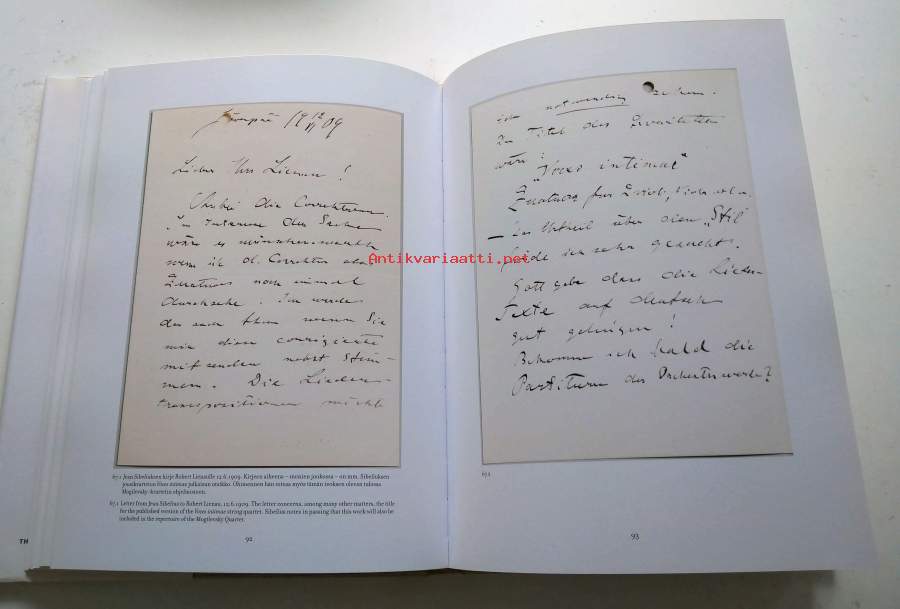 Järvenpää 19 12/VI 09
Lieber Herr Lienau!
Anbei die Correkturen.
Im Interesse der Sache
wäre es wünschenswerth
wenn ich d. Correktur des
Quatuors noch einmal
durchsehe. Ich werde
das auch thun wenn Sie
mir diese corrigierte
mitsenden nebst Stim-
men. Die Lieder-
transpositionen möchte
67.1 Jean Sibeliuksen kirje Robert Lienaulle 12.6.1909. Kirjeen aiheena – monien joukossa – on mm. Sibeliuksen
jousikvarteton Voces intimae julkaisun otsikko. Ohimennen hän toteaa myös tämän teoksen olevan tulossa
Mogilevsky-kvartetin ohjelmistoon.
67.1 Letter from Jean Sibelius to Robert Lienau, 12.6.1909. The letter concerns, among many other matters, the title
for the published version of the Voces intimae string quartet. Sibelius notes in passing that this work will also be
included in the repertoire of the Mogilevsky Quartet.
TH
92
ich notwendig sehen.
Der Titel des Quartetten
wäre:
„Voces intimae"
Quatuor für 2 Viol., Viola u.
– Das Urtheil über den „Stil"
finde ich sehr gesucht.
Gott gebe dass die Lieder-
Texte auf deutsch
gut gelingen!
Bekomme ich bald die
Partituren der Orchesterwerke?
67.2
93
Antikvariaatti.net